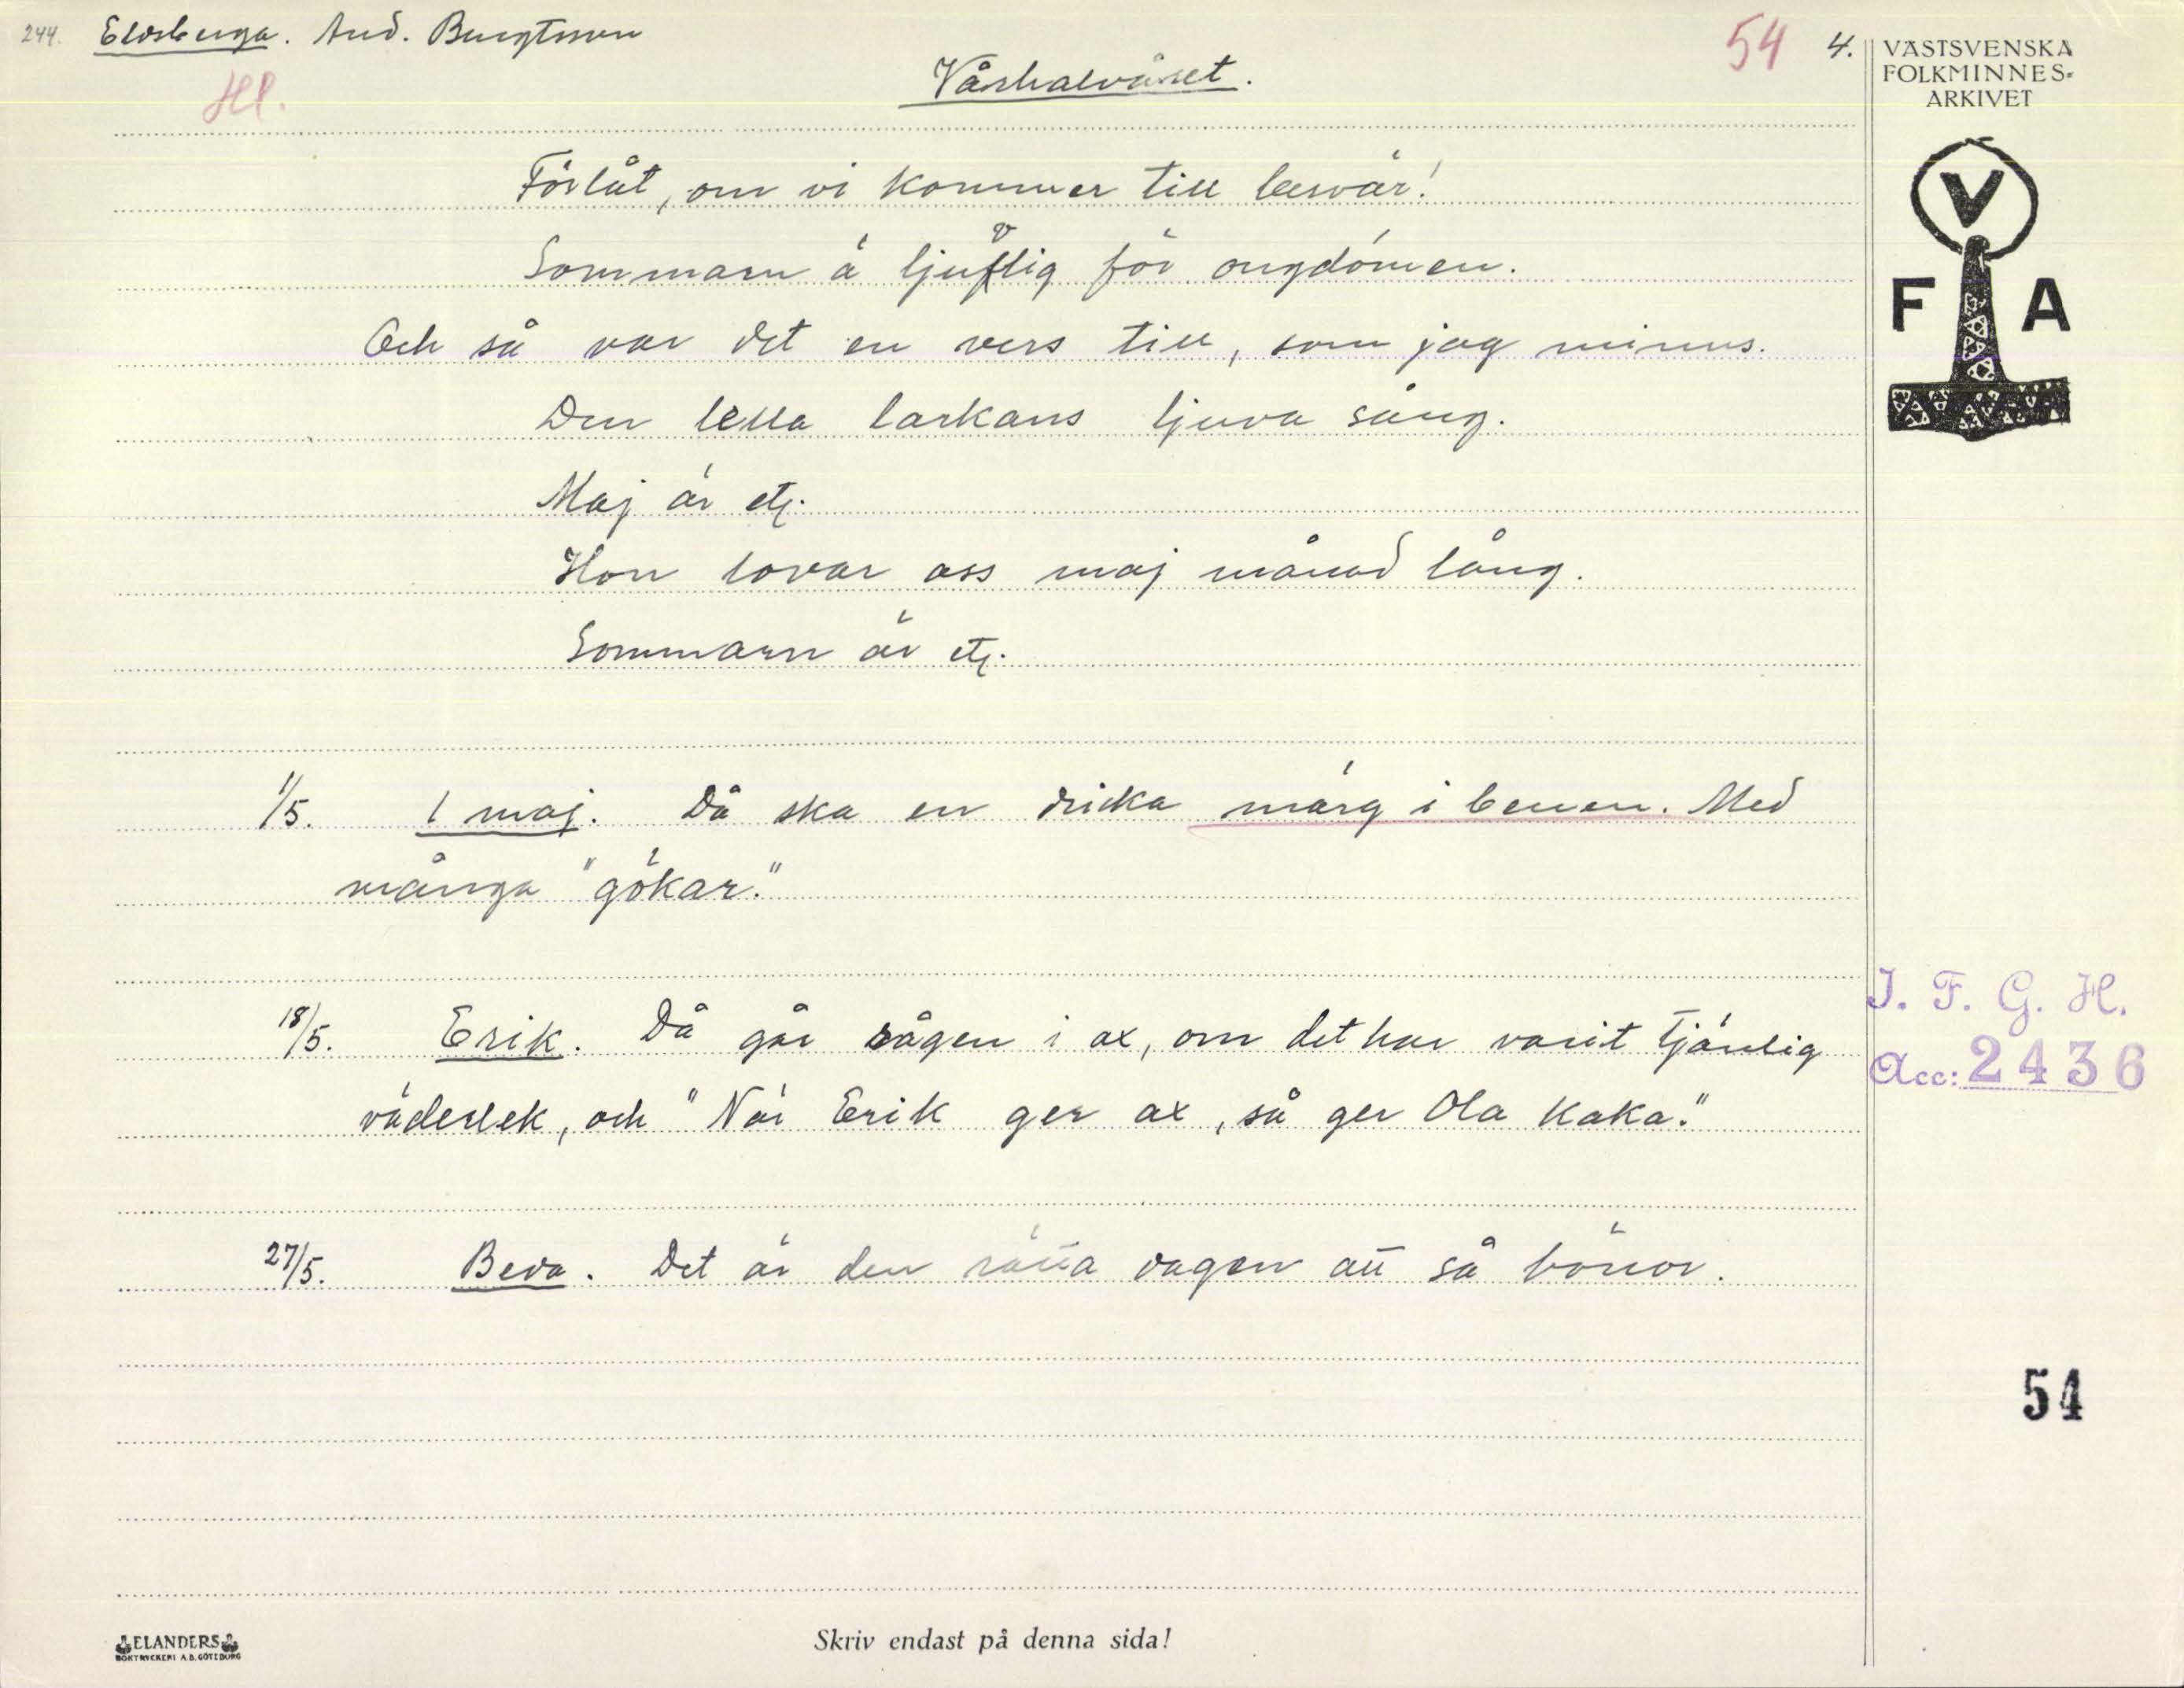 244. Eldsberga. And. Bengtsson
54 4.
Hl.
Vårhalvåret.
VÄSTSVENSKA
FOLKMINNES-
ARKIVET
V
F A
Förlåt, om vi kommer till besvär!
Sommarn ä ljuvlig för ongdomen.
Och så var det en vers till, som jag minns.
Den lella lärkans ljuva sång.
Maj är etc.
Hon lovar oss maj månad lång.
Sommarn är etc.
1/5. 1 maj. Då ska en dricka märg i benen. Med
många "gökar."
18/5. Erik. Då går rågen i ax, om det har varit tjänlig
väderlek, och "När Erik ger ax, så ger Ola kaka."
I. F. G. H.
Acc: 2436
27/5. Beda. Det är den rätta dagen att så bönor.
54
ELANDERS
BOKTRYCKERI A.B. GÖTEBORG
Skriv endast på denna sida!